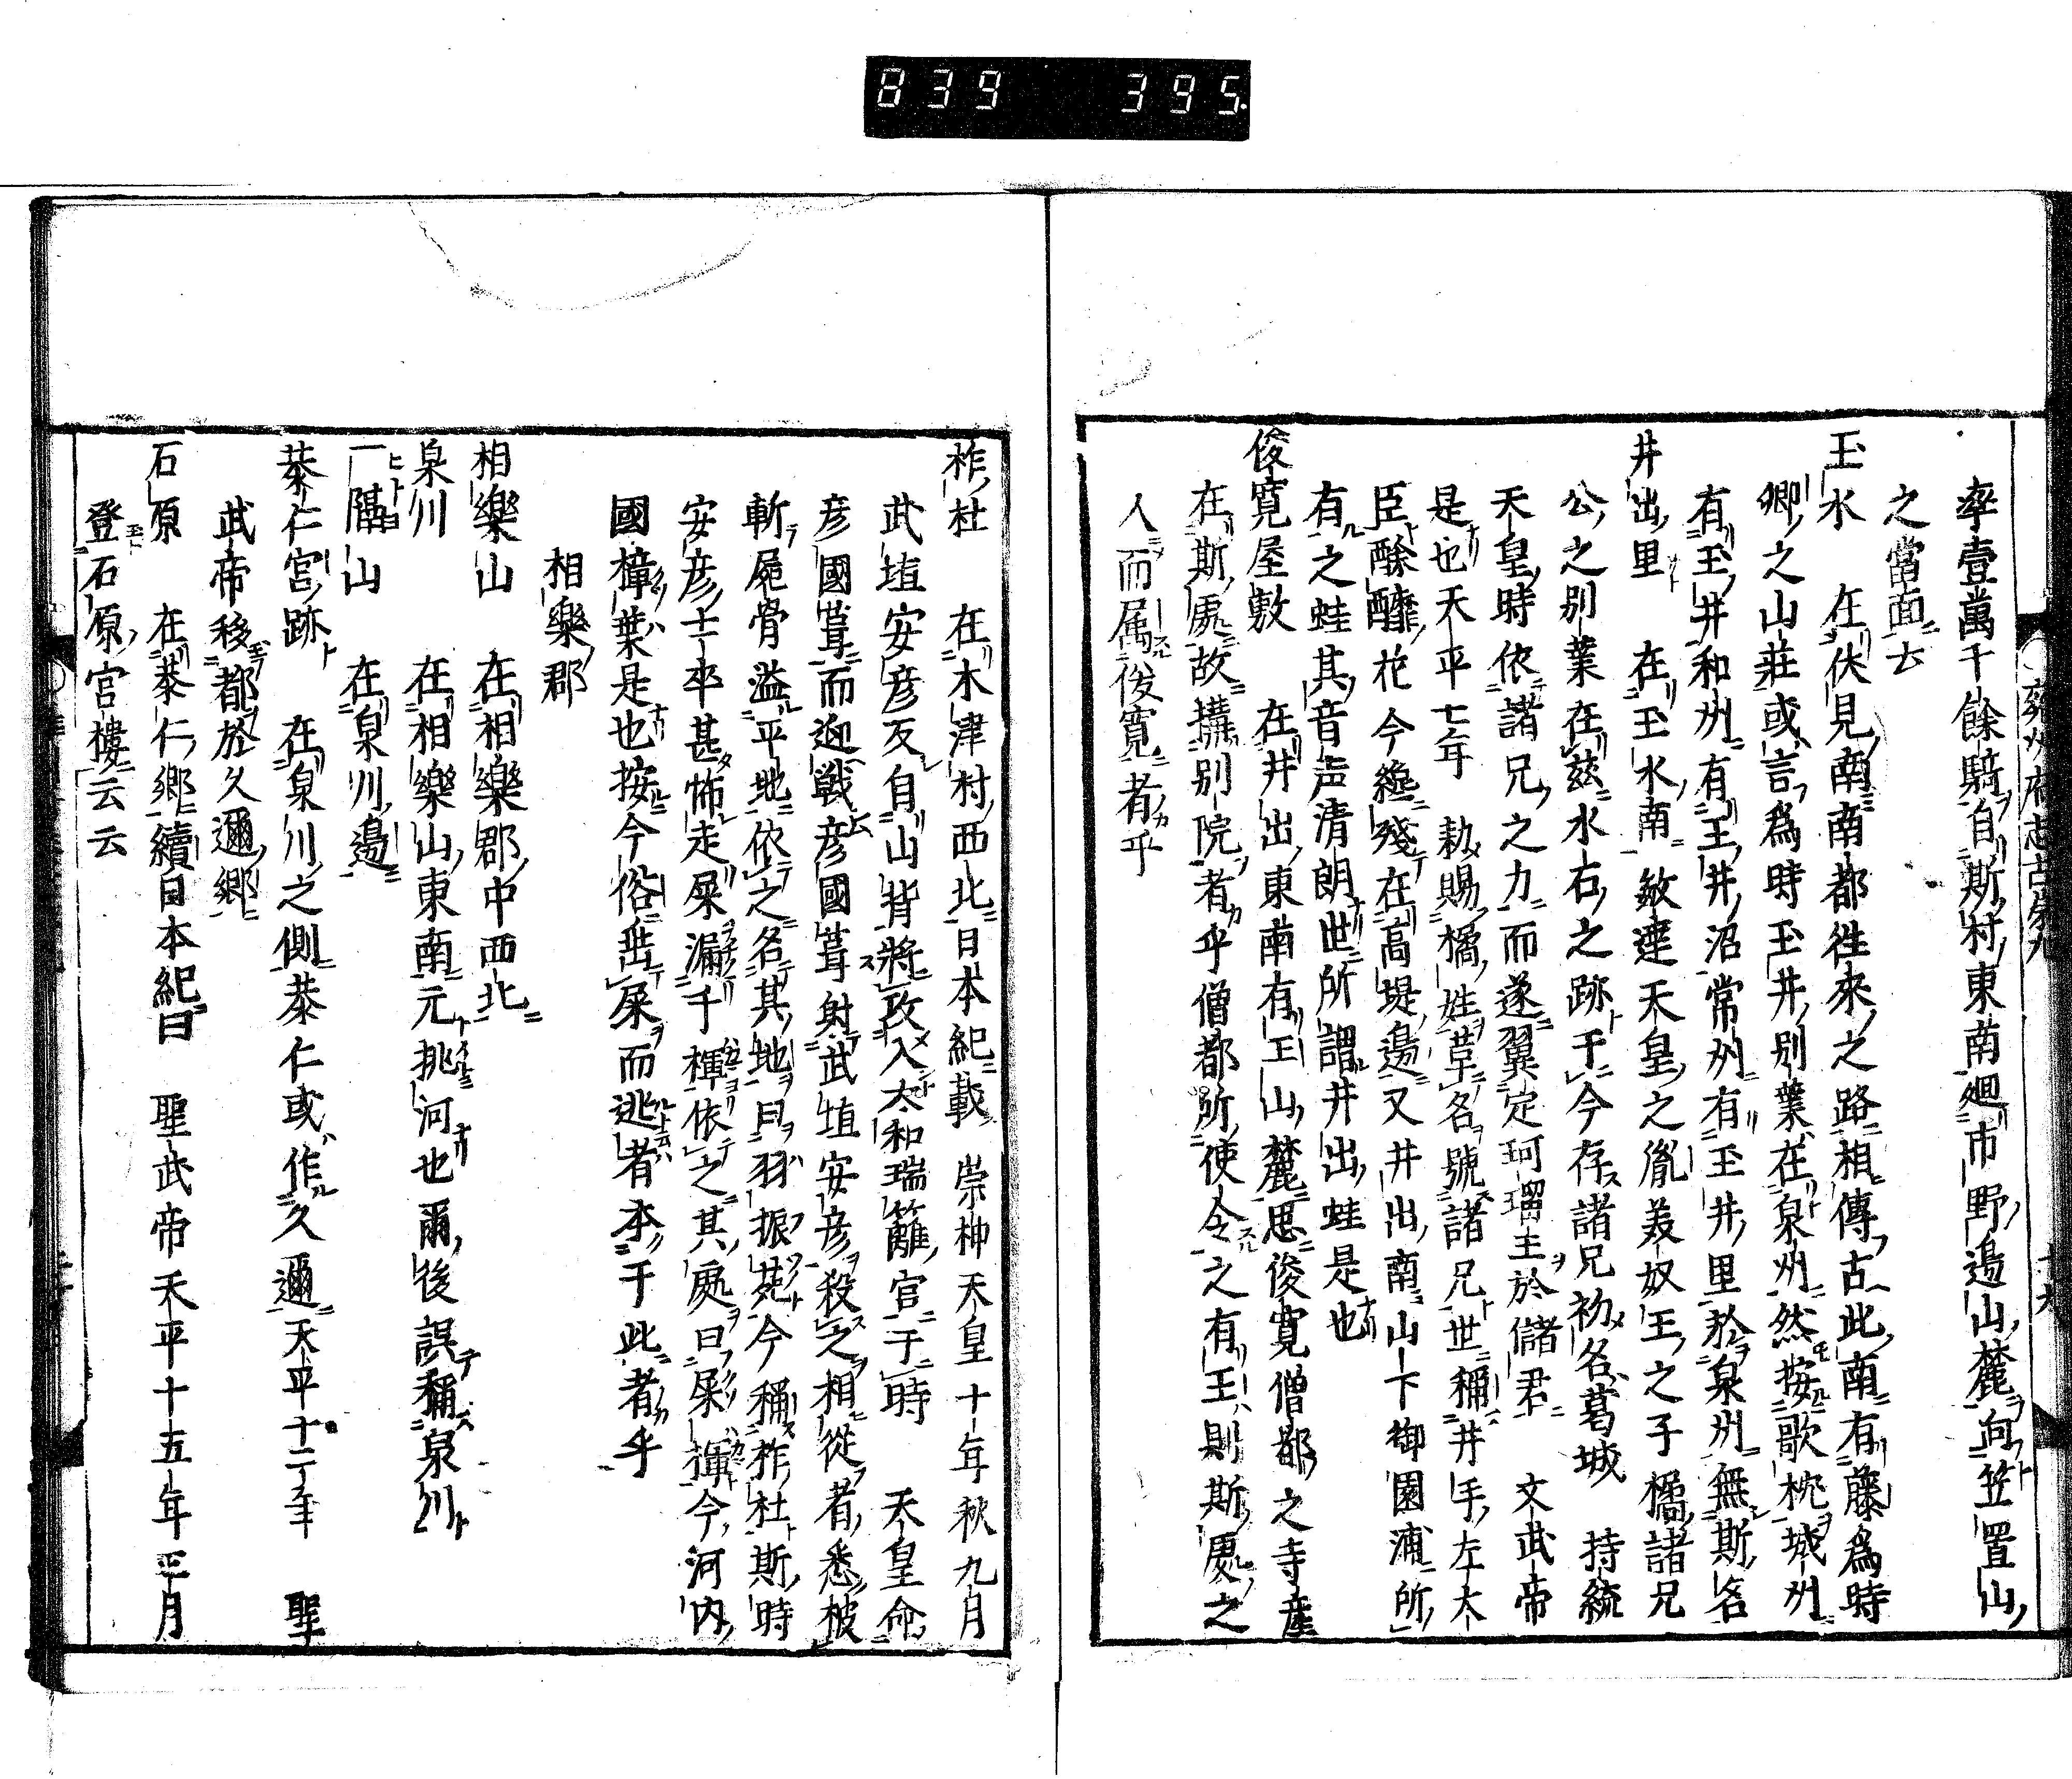 839 395
率壹萬千餘騎自斯村東南廻市野邉山麓向笠置山
之當面云
玉水 在伏見南南都往來之路相傳古此南有藤爲時
卿之山莊或言爲時玉井別業在泉州然按歌枕城州
有玉井和州有玉井沼常州有玉井里於泉州無斯名
井出里 在玉水南 敏達天皇之胤美奴王之子橘諸兄
公之别業在茲水右之跡于今存諸兄初名葛城 持統
天皇時依諸兄之力而遂翼定珂瑠王於儲君 文武帝
是也天平七年 勅賜橘姓草名號諸兄世稱井手左大
臣酴醾花今纔殘在高堤邉又井出南山下御園浦所
有之蛙其音声清朗世所謂井出蛙是也
俊寛屋敷 在井出東南有王山麓思俊寛僧都之寺産
在斯處故搆别院者乎僧都所使令之有王則斯處之
人而属俊寛者乎
柞杜 在木津村西北日本紀載 崇神天皇十年秋九月
武埴安彦反自山背將攻入太和瑞籬宮于時 天皇命
彦國葺而迎戰彦國葺射武埴安彦殺之相從者悉被
斬屍骨溢平地依之名其地曰羽振苑今稱柞杜斯時
安彦士卒甚怖走屎漏于褌依之其處曰屎褌今河内
國樟葉是也按今俗出屎而逃者本于此者乎
相樂郡
相樂山 在相樂郡中西北
泉川 在相樂山東南元挑河也爾後誤稱泉川
一隔山 在泉川邉
恭仁宮跡 在泉川之側恭仁或作久邇天平十二年 聖
武帝移都於久邇郷
石原 在恭仁郷續日本紀曰 聖武帝天平十五年正月
登石原宮樓云云